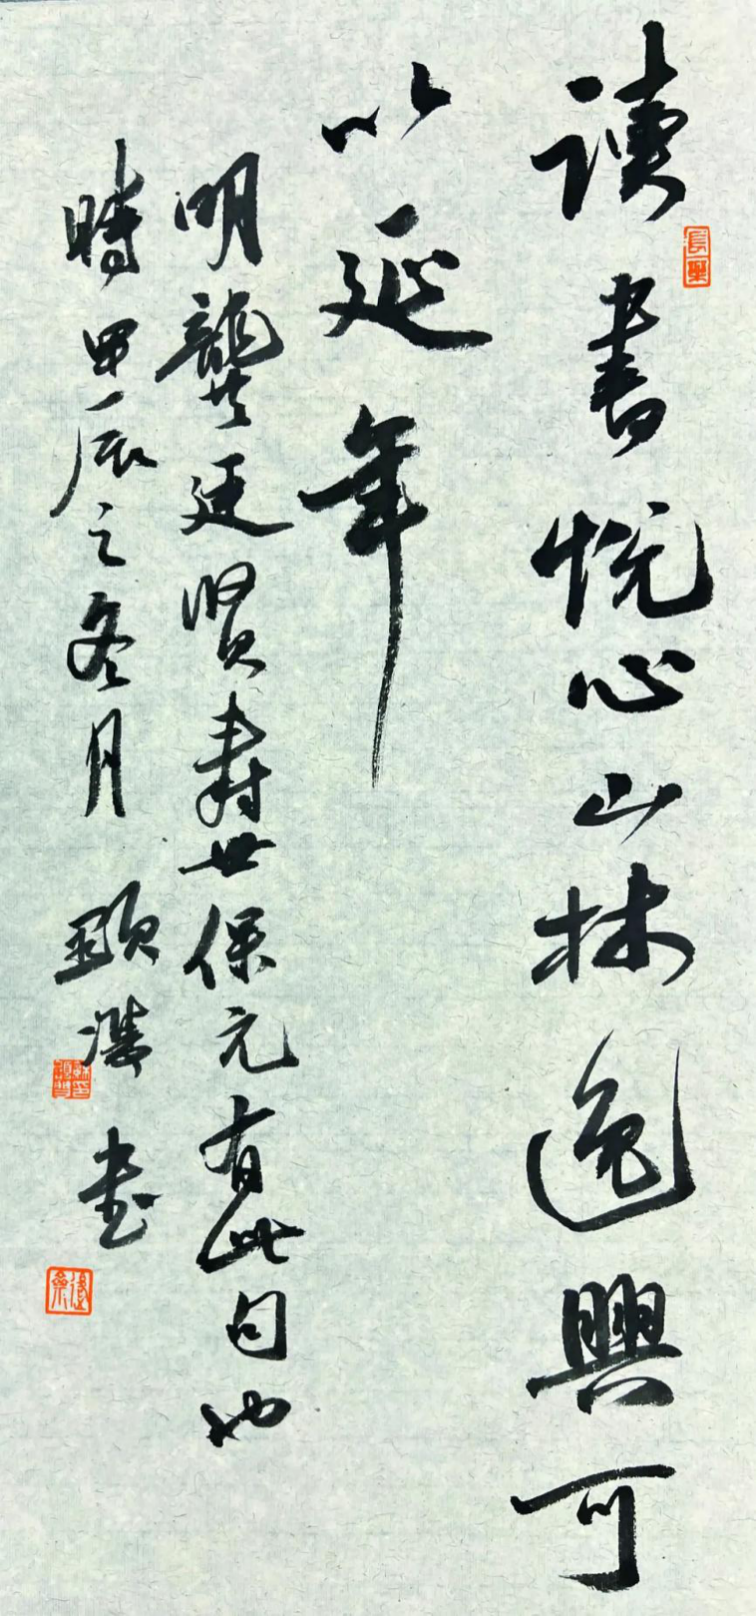 讀書悦心山林逸興可
以延年
明龔廷賢壽世保元有此句也
時甲辰之冬月 顕濤書